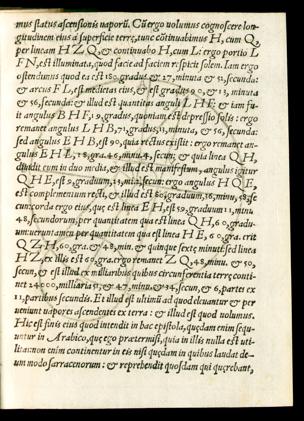 mus status ascensionis vaporũ. Cũ ergo volumus cognoscere lon-
gitudinem eius a superficie terę, tunc cõtinuabimus H, cum Q,
per lineam H Z Q, & continuabo H, cum L: ergo portio L
F N, est illuminata, quod facie ad faciem respicit solem. Iam ergo
ostendimus quod ea est 180. gradus. & 27, minuta & 52, secunda:
& arcus F L, est medietas eius, & est gradus 90, & 13, minuta
& 56, secunda: & illud est quantitas anguli L H E & iam fu-
it angulus B H F, 19, gradus, quoniam est depressio solis: ergo
remanet angulus L H B, 71, gradus, 13, minuta, & 56, secunda:
sed angulus E H B, est 90, quia rectus existit: ergo remanet an-
gulus E H L, 18, gra. 46, minu, 4, secun; & quia linea Q H,
diuidit eum in duo media, & illud est manifestum, angulus igitur
Q H E, est 9, gradiuum, 23, mi, 2, secun: ergo angulus H Q E,
est complementum recti, & illud est 80, gradiuum, 36, minu, 58, se-
cun: corda ergo eius, que est linea E H, est 59, graduum 11, minu
48, secundorum, per quantitatem qua est linea Q H, 60, gradu-
um: verum tamen per quantitatem qua est linea H E, 60, gra. erit
Q Z H, 60, gra. & 48, min, & quinque sextę minuti: sed linea
H Z, ex illis est 60, gra. ergo remanet Z Q, 48, minu, & 50,
secun, & est illud ex milliaribus quibus circunferentia terę conti-
net 24000, milliaria 51, & 47, minu, & 34, secun, & 6, partes ex
11, partibus secundis. Et illud est ultimũ ad quod eleuantur & per
ueniunt vapores ascendentes ex terra: & illud est quod volumus.
Hic est finis eius quod intendit in hac epistola, quędam enim sequ-
untur in Arabico, quę ego prætermisi, quia in illis nulla est uti-
litas: non enim continentur in eis nisi quędam in quibus laudat de-
um modo sarracenorum: & reprehendit quosdam qui quęrebant,